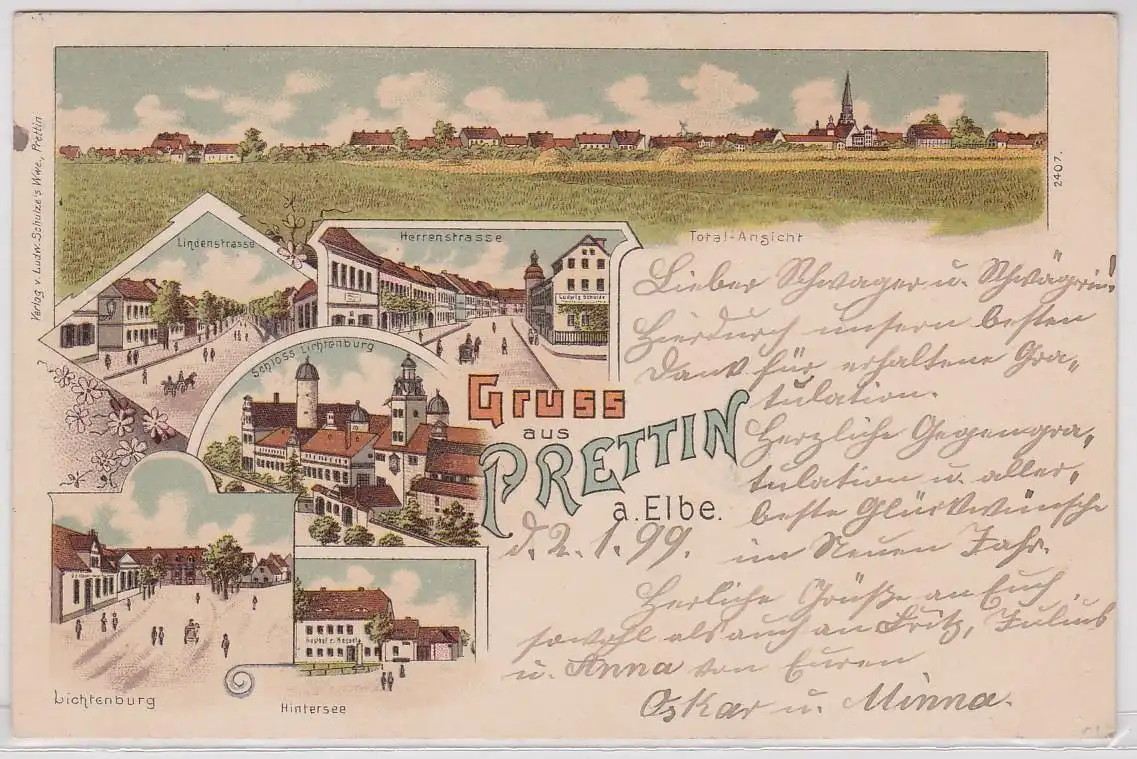 Verlag v. Ludw. Schulze's Wwe., Prettin
2407.
Total-Ansicht
Lindenstrasse
Herrenstrasse
Schloss Lichtenburg
Gruss
aus
PRETTIN
a. Elbe.
Lichtenburg
Hintersee
d. 2. 1. 99.
Lieber Schwager u. Schwägerin!
Hierdurch unsern besten
Dank für erhaltene Gra-
tulation.
Herzliche Gegengra-
tulation u. aller-
beste Glückwünsche
im Neuen Jahr.
Herliche Grüße an Euch,
sowohl als auch an Fritz, Julius
u. Anna von Euren
Oskar u. Minna.